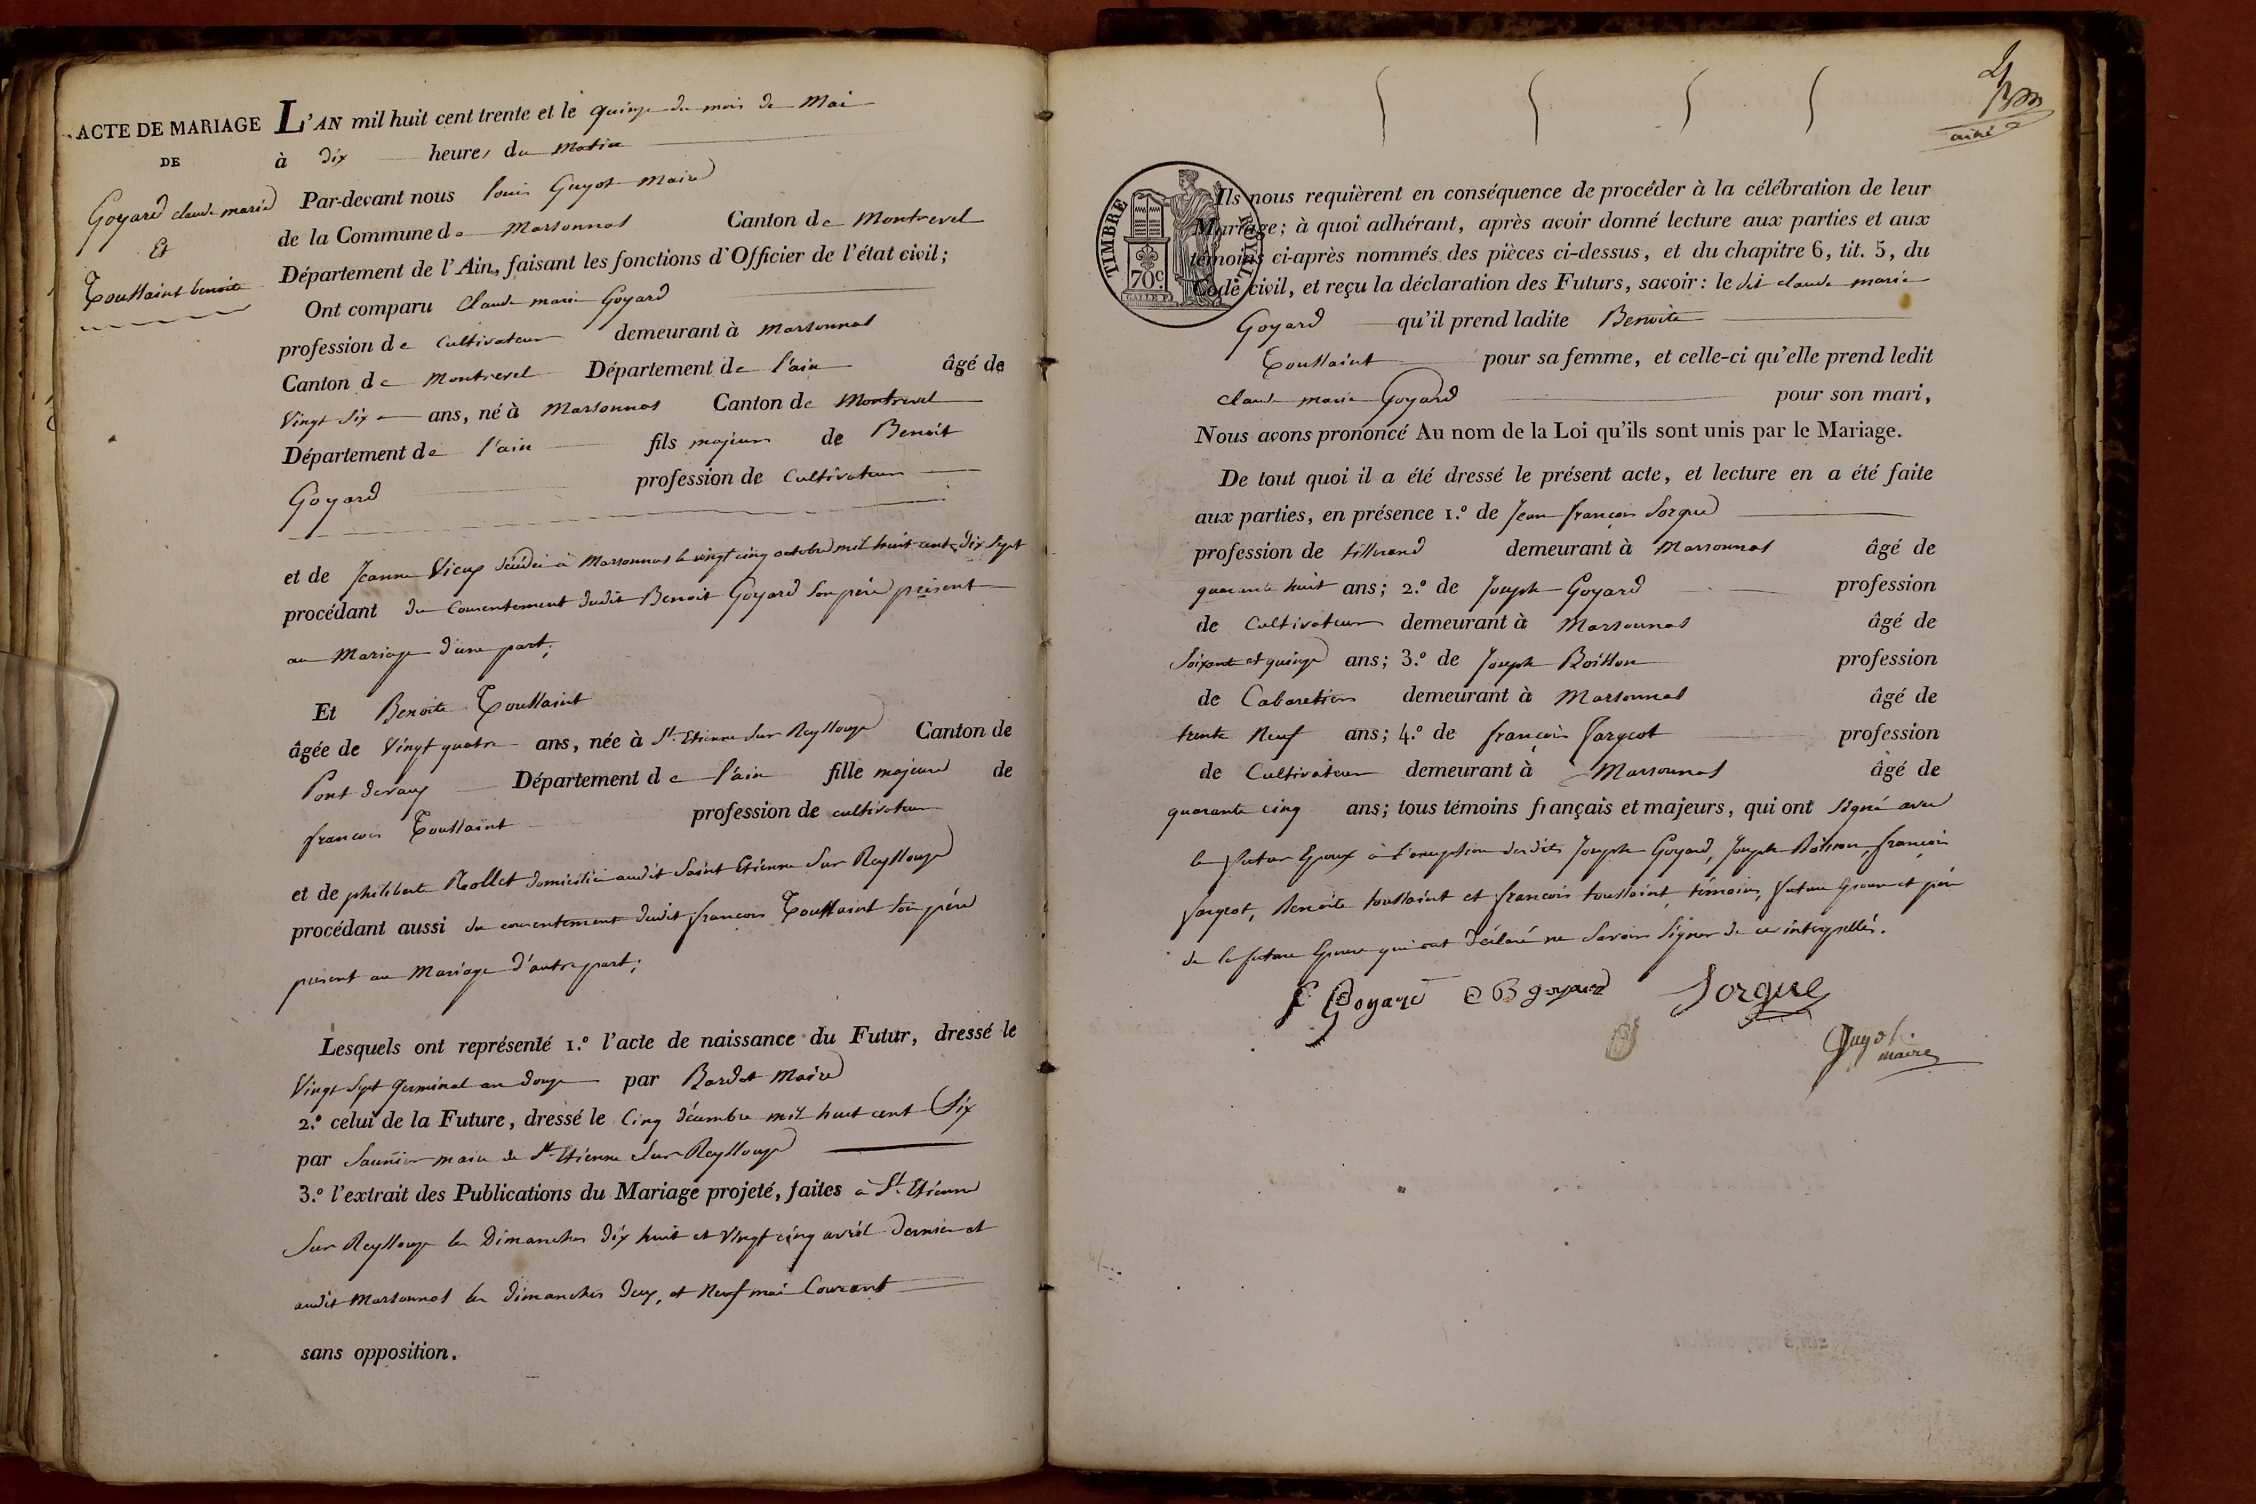 ACTE DE MARIAGE
DE
Goyard claude marie
Et
Toussaint benoite
L'AN mil huit cent trente et le quinze du mois de Mai
à dix heures du Matin
Par-devant nous Louis Guyot Maire
de la Commune de Marsonnas Canton de Montrevel
Département de l'Ain, faisant les fonctions d'Officier de l'état civil;
Ont comparu Claude marie Goyard
profession de Cultivateur demeurant à Marsonnas
Canton de Montrevel Département de l'ain âgé de
Vingt Six ans, né à Marsonnas Canton de Montrevel
Département de l'ain fils majeur de Benoit
Goyard profession de Cultivateur
et de Jeanne Vieux décédée à Marsonnas le vingt cinq octobre mil huit cent dix sept
procédant du Consentement dudit Benoit Goyard Son père présent
au Mariage d'une part;
Et Benoite Toussaint
âgée de Vingt quatre ans, née à St. Etienne Sur Reyssouze Canton de
Pont devaux Département de l'ain fille majeure de
francois Toussaint profession de cultivateur
et de philiberte Rollet domiciliés audit Saint Etienne Sur Reyssouze
procédant aussi du consentement dudit francois Toussaint Son père
présent au Mariage d'autre part;
Lesquels ont représenté 1.º l'acte de naissance du Futur, dressé le
Vingt Sept Germinal an douze par Bardet Maire
2.º celui de la Future, dressé le Cinq décembre mil huit cent Six
par Saunier maire de St. Etienne Sur Reyssouze
3.º l'extrait des Publications du Mariage projeté, faites à St. Etienne
Sur Reyssouze les Dimanches dix huit et Vingt cinq avril dernier et
audit Marsonnas les dimanches deux, et Neuf mai Courant
sans opposition.
TIMBRE ROYAL
70c
Ils nous requièrent en conséquence de procéder à la célébration de leur
Mariage; à quoi adhérant, après avoir donné lecture aux parties et aux
témoins ci-après nommés des pièces ci-dessus, et du chapitre 6, tit. 5, du
Code civil, et reçu la déclaration des Futurs, savoir: le dit claude marie
Goyard qu'il prend ladite Benoite
Toussaint pour sa femme, et celle-ci qu'elle prend ledit
claude marie Goyard pour son mari,
Nous avons prononcé Au nom de la Loi qu'ils sont unis par le Mariage.
De tout quoi il a été dressé le présent acte, et lecture en a été faite
aux parties, en présence 1.º de Jean françois Sorgue
profession de tisserand demeurant à Marsonnas âgé de
quarante huit ans; 2.º de Joseph Goyard profession
de Cultivateur demeurant à Marsonnas âgé de
Soixante et quinze ans; 3.º de Joseph Boisson profession
de Cabaretier demeurant à Marsonnas âgé de
trente Neuf ans; 4.º de françois profession
de Cultivateur demeurant à Marsonnas âgé de
quarante cinq ans; tous témoins français et majeurs, qui ont Signé avec
le futur Epoux à l'exception desdits Joseph Goyard, Joseph Boisson, françois
Benoite toussaint et francois toussaint, témoins, future Epouse et père
de la future Epouse qui ont déclaré ne Savoir Signer de ce interpellés.
Goyard B goyard Sorgue
Guyot
maire